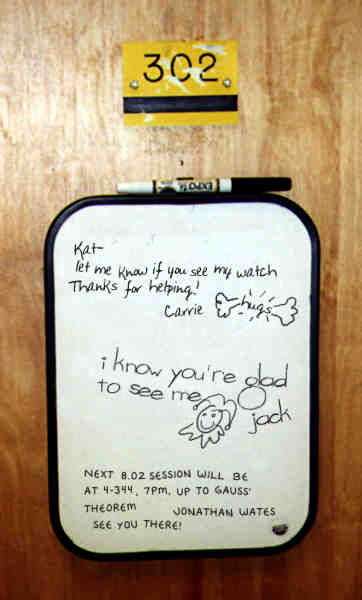 302
EXPO
Kat-
let me know if you see my watch
Thanks for helping!
Carrie hugs
i know you're glad
to see me
jack
NEXT 8.02 SESSION WILL BE
AT 4-344, 7PM, UP TO GAUSS'
THEOREM JONATHAN WATES
SEE YOU THERE!